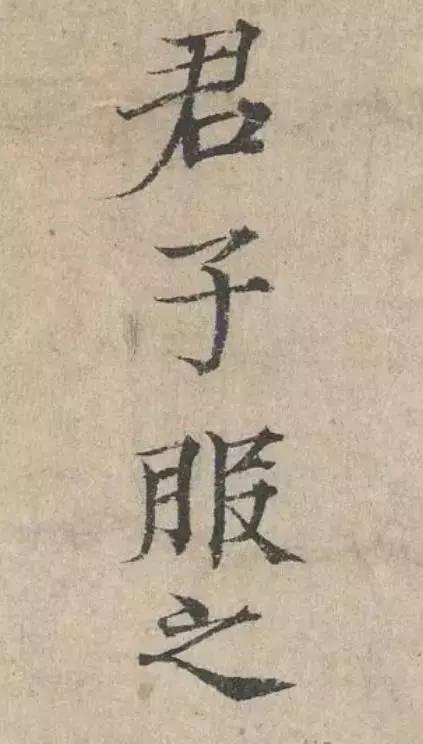 君子服之